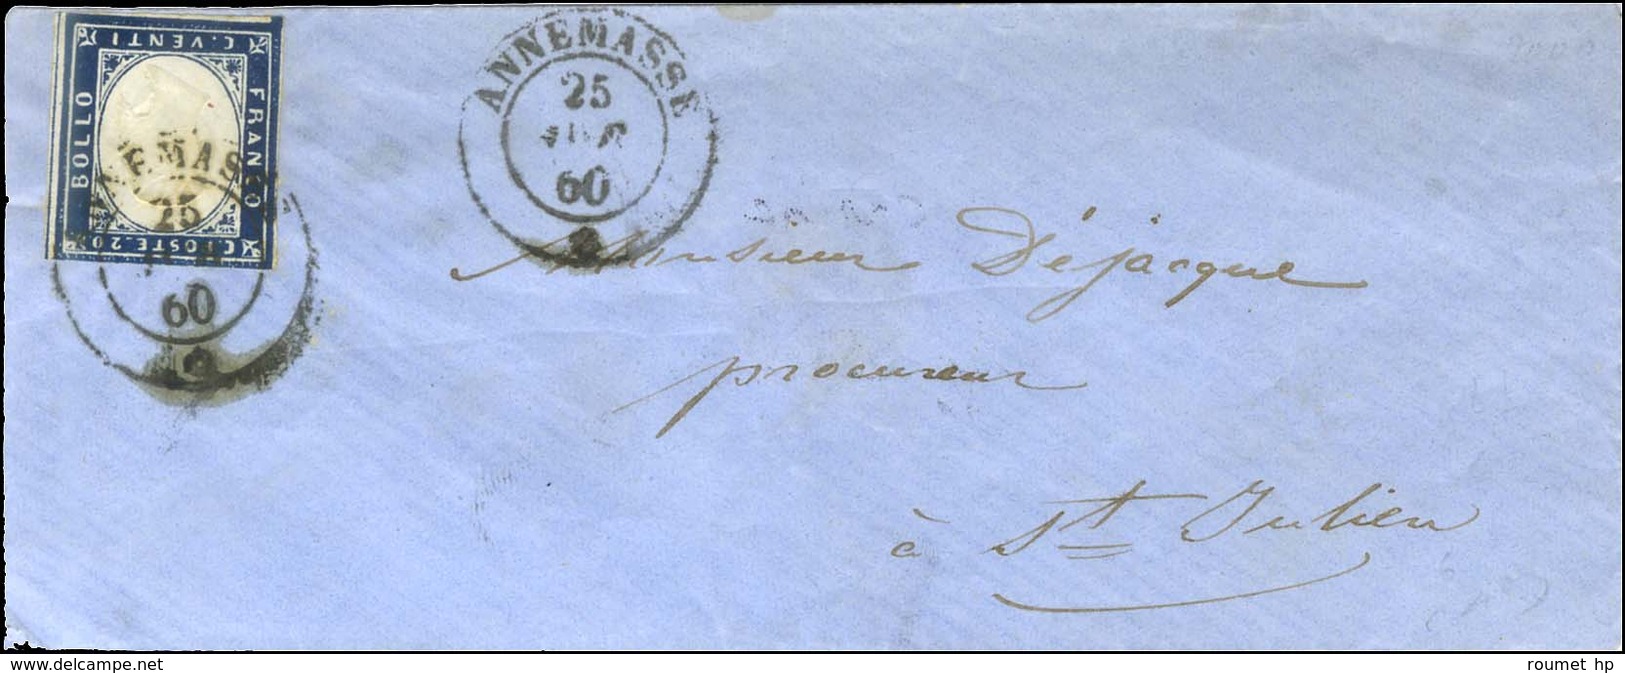 C. VENTI
BOLLO
FRANCO
C. POSTE. 20
25
60
2
ANNEMASSE
25
60
2
Monsieur Déjacque
procureur
à St Julien
www.delcampe.net
roumet hp